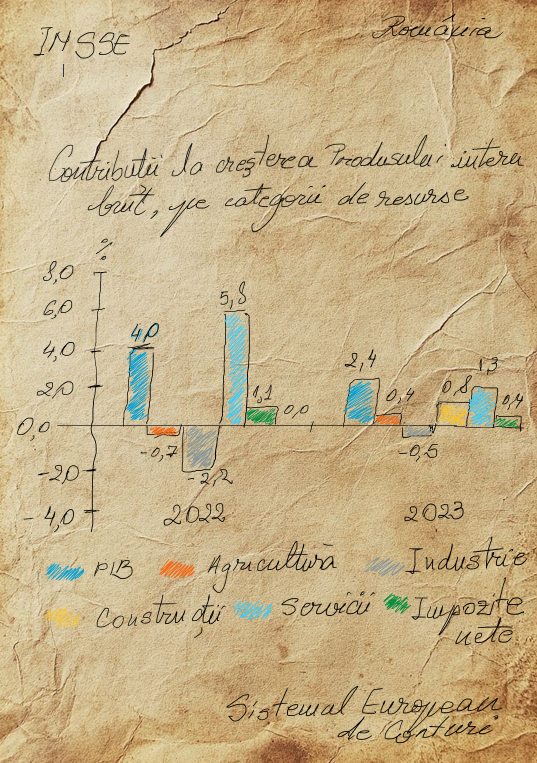 INSSE
România
Contribuții la creșterea Produsului intern
brut, pe categorii de resurse
%
8,0
6,0
4,0
2,0
0,0
-2,0
-4,0
4,0
-0,7
-2,2
5,8
1,1
0,0
2,4
0,4
-0,5
0,8
1,3
0,4
2022
2023
PIB
Agricultură
Industrie
Construcții
Servicii
Impozite
nete
Sistemul European
de Conturi